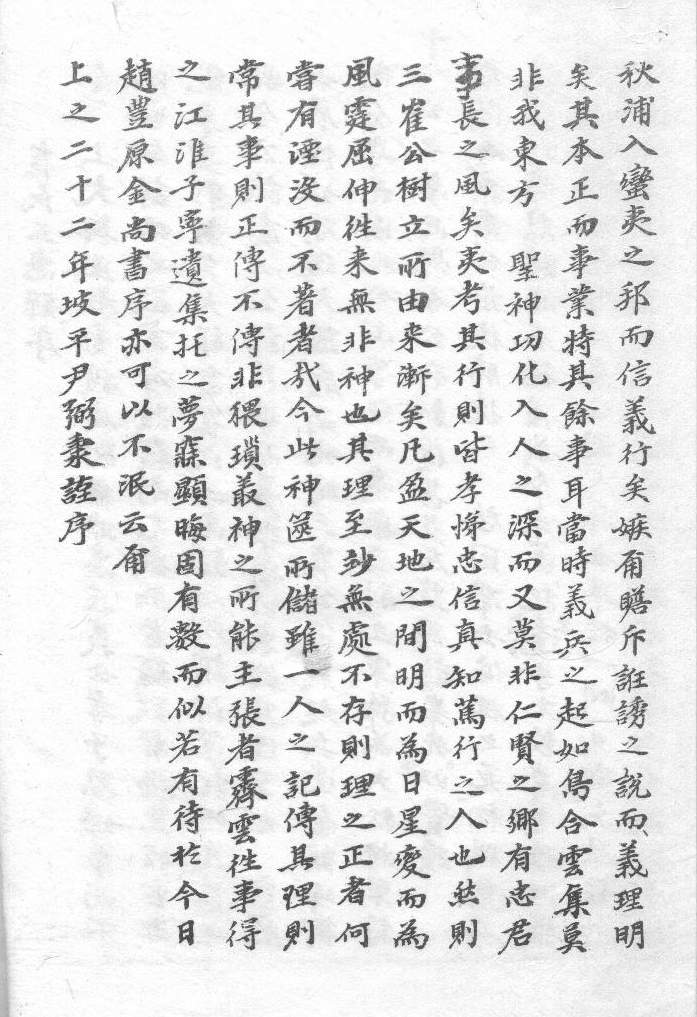 秋浦入蠻夷之邦而信義行矣嫉甭瞻斥誑謗之說而義理明
矣其本正而事業特其餘事耳當時義兵之起如鳥合雲集莫
非我東方 聖神功化入人之深而又莫非仁賢之鄉有忠君
事長之風矣夷考其行則皆孝悌忠信真知篤行之人也然則
三崔公樹立所由来漸矣凡盈天地之間明而為日星変而為
風霆屈伸徃来無非神也其理至妙無處不存則理之正者何
嘗有湮没而不著者㢤今此神篋所儲雖一人之記傳其理則
常其事則正傳不傳非猥瑣叢神之所能主張者霽雲徃事得
之江淮子寧遺集托之夢寐顯晦固有數而似若有待於今日
趙豊原金尚書序亦可以不泯云甭
上之二十二年坡平尹弼秉謹序